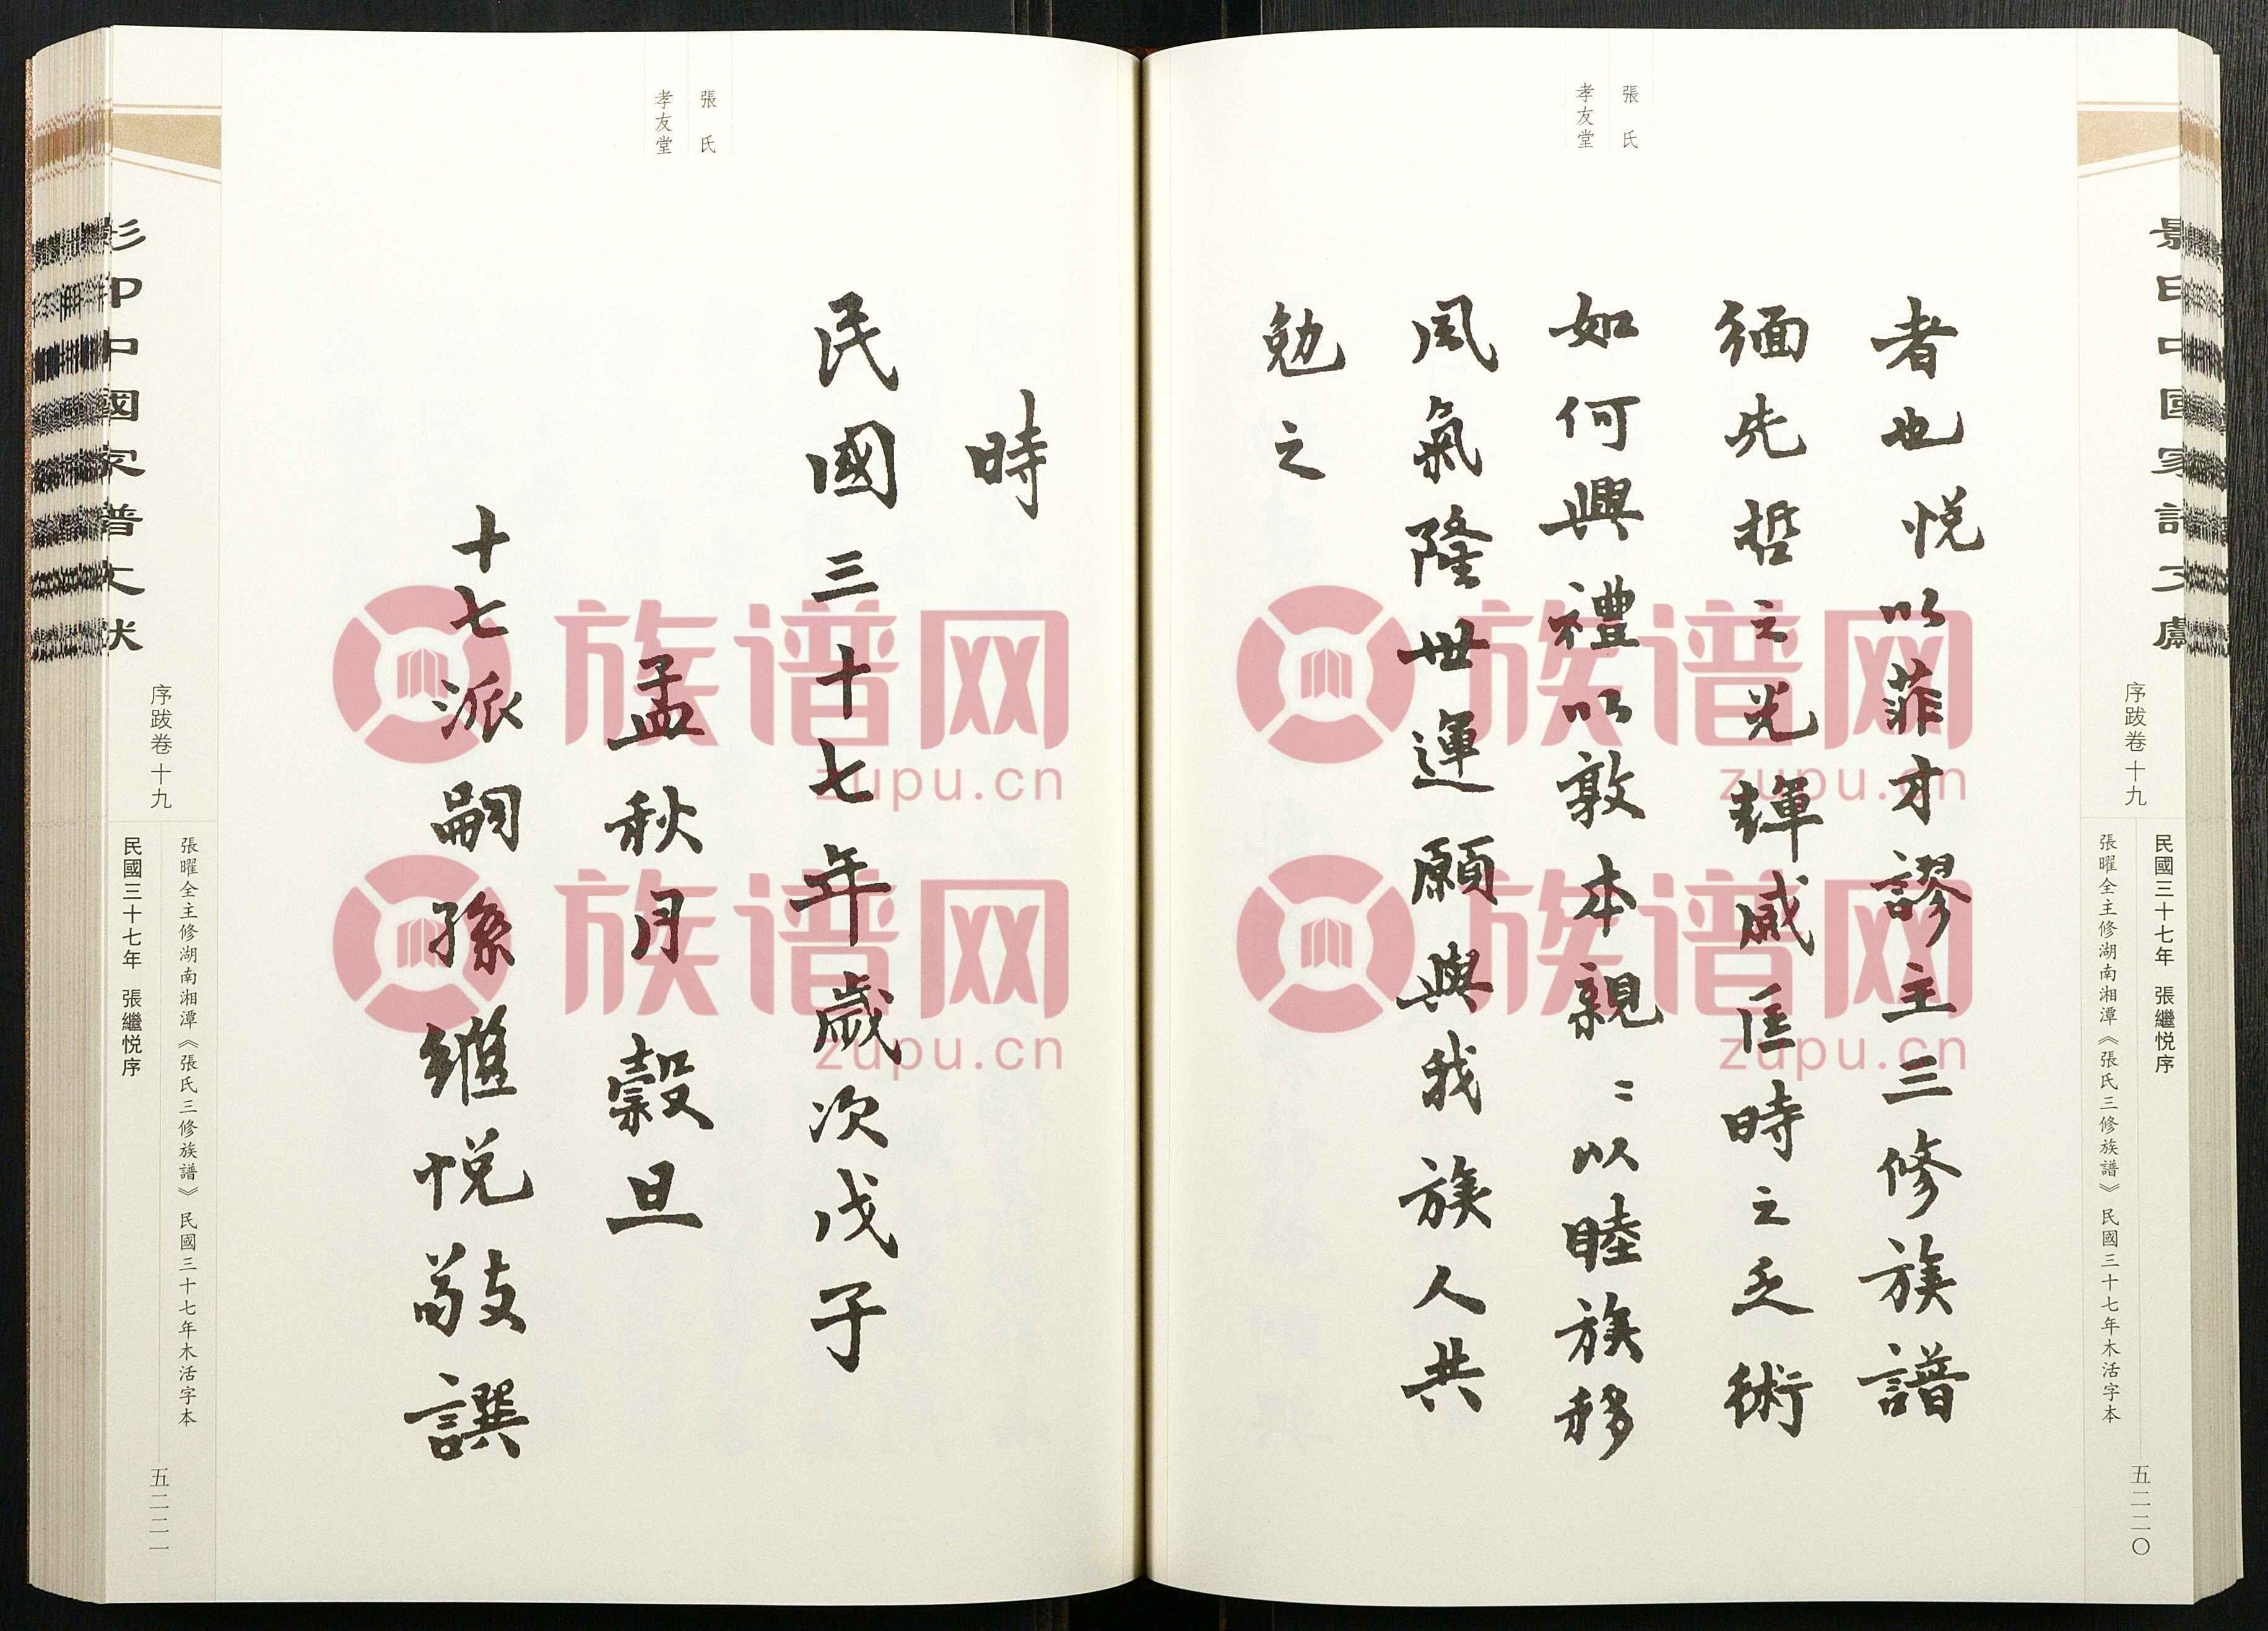 張氏
孝友堂
者也悦以菲才謬主三修族譜
緬先哲之光輝感匡時之乏術
如何興禮以敦本親〻以睦族移
風氣隆世運願與我族人共
勉之
景印中國家譜文獻
序跋卷十九
民國三十七年 張繼悦序
張曜全主修湖南湘潭《張氏三修族譜》民國三十七年木活字本
五二二〇
張氏
孝友堂
時
民國三十七年歲次戊子
孟秋月穀旦
十七派嗣孫繼悦敬譔
影印中國家譜文獻
序跋卷十九
張曜全主修湖南湘潭《張氏三修族譜》民國三十七年木活字本
民國三十七年 張繼悦序
五二二一
族谱网
zupu.cn
族谱网
zupu.cn
族谱网
zupu.cn
族谱网
zupu.cn